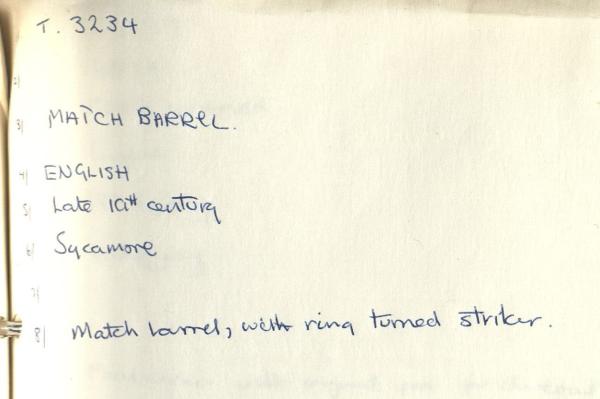 T. 3234
2)
3) MATCH BARREL.
4) ENGLISH
5) Late 19th century
6) Sycamore
7)
8) Match barrel, with ring turned striker.